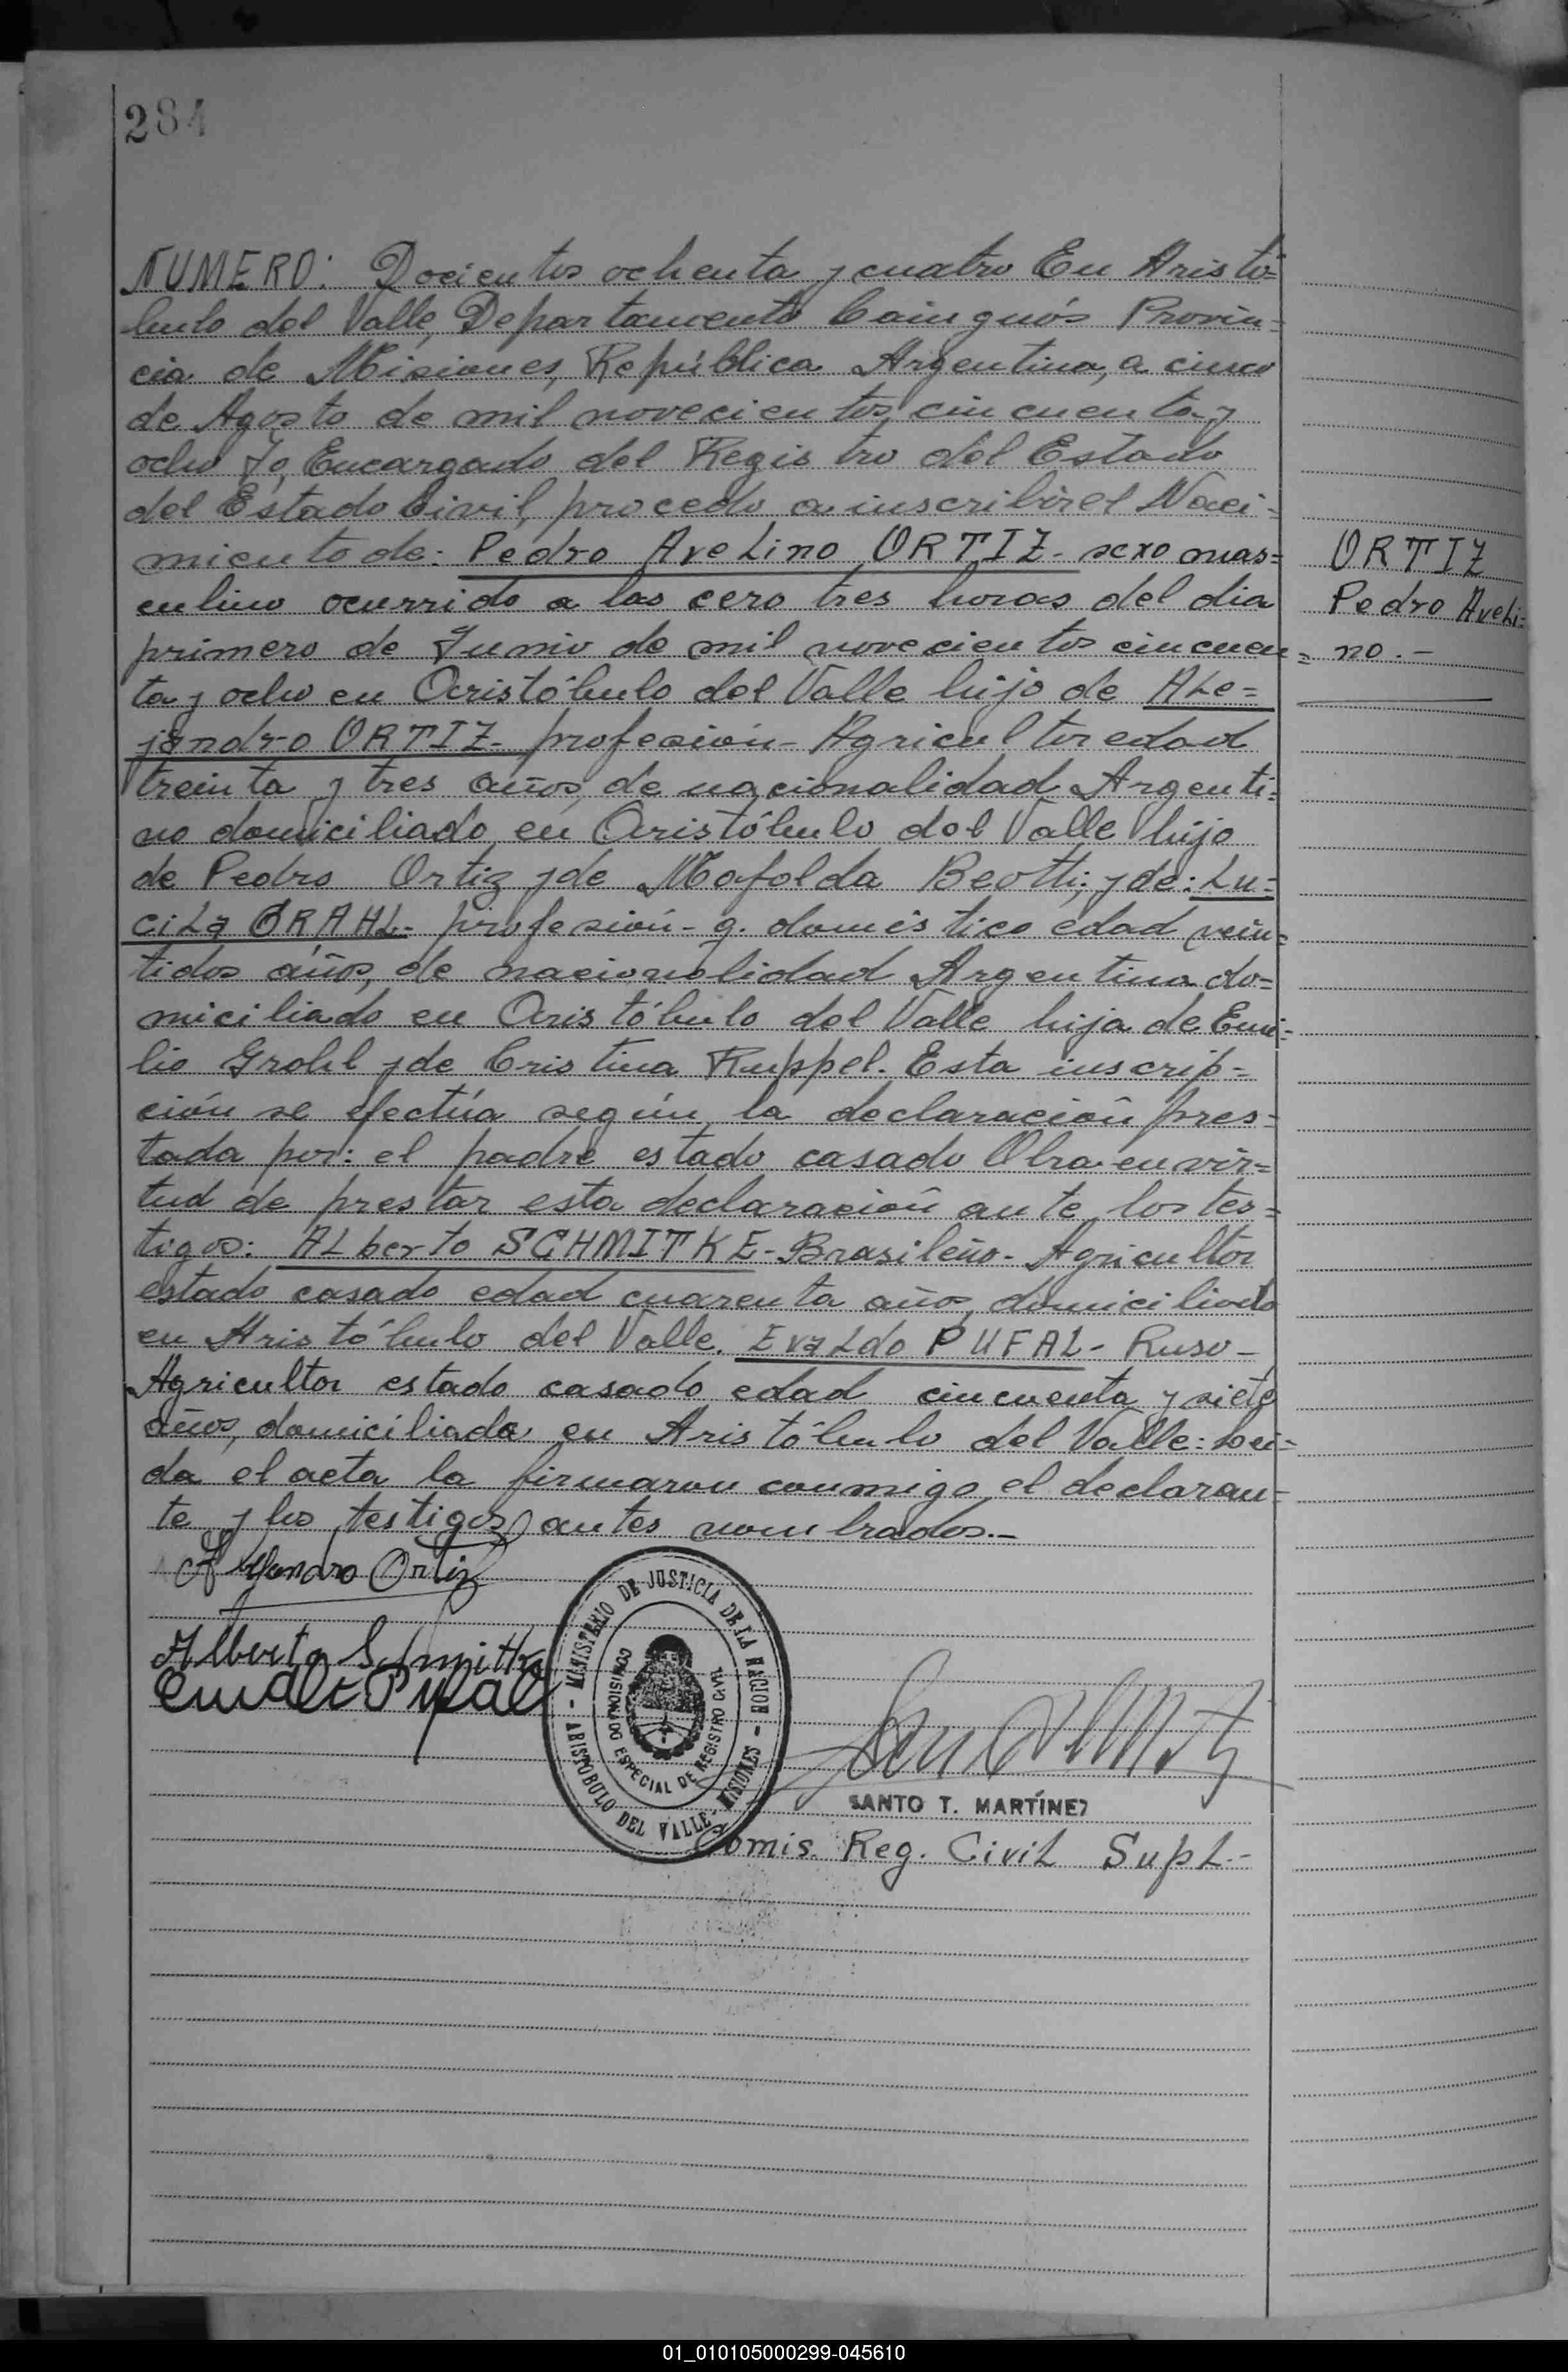 284
NUMERO: Docientos ochenta y cuatro En Aristó=
bulo del Valle, Departamento Cainguás Provin=
cia de Misiones, República Argentina, a cinco
de Agosto de mil novecientos cincuenta y
ocho Yo, Encargado del Registro del Estado
del Estado Civil, procedo a inscribir el Naci=
miento de: Pedro Avelino ORTIZ- sexo mas=
culino ocurrido a las cero tres horas del dia
primero de Junio de mil novecientos cincuen=
ta y ocho en Aristóbulo del Valle hijo de ALe=
jandro ORTIZ- profesión- Agricultor edad
treinta y tres años, de nacionalidad Argenti=
no domiciliado en Aristóbulo del Valle hijo
de Pedro Ortiz y de Mafolda Beotti; y de: Lu=
ciLa GRAHL- profesión- q. doméstico edad vein=
tidos años, de nacionalidad Argentina do=
miciliado en Aristóbulo del Valle hija de Emi=
lio Grohl y de Cristina Ruppel. Esta inscrip=
ción se efectúa según la declaración pres=
tada por: el padre estado casado Obra en vir=
tud de prestar esta declaración ante los tes=
tigos: ALberto SCHMITKE- Brasileño- Agricultor
estado casado edad cuarenta años, domiciliado
en Aristóbulo del Valle. EvaLdo PUFAL- Ruso-
Agricultor estado casado edad cincuenta y siete
años, domiciliado en Aristóbulo del Valle: Leí=
da el acta la firmaron conmigo el declaran=
te y los testigos antes nombrados.-
ORTIZ
Pedro AveLi=
no.-
Alejandro Ortiz
Alberto Schmittke
Pufal
- MINISTERIO DE JUSTICIA DE LA NACION -
ARISTOBULO DEL VALLE - MISIONES
COMISIONADO ESPECIAL DE REGISTRO CIVIL
SANTO T. MARTÍNEZ
Comis. Reg. CiviL SupL.-
01_010105000299-045610